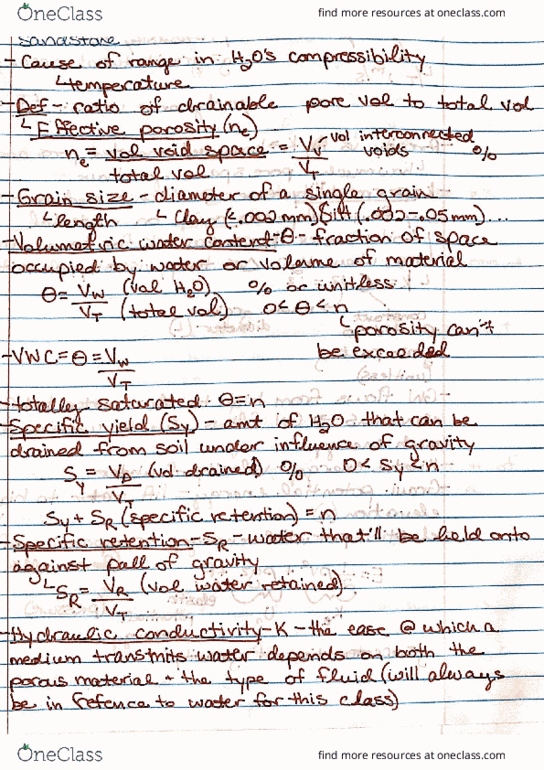 OneClass
find more resources at oneclass.com
sandstone
- Cause of range in H₂O's compressibility
↳ temperature
- Def - ratio of drainable pore vol to total vol
↳ Effective porosity (nₑ)
nₑ = vol void space / total vol = Vᵥ / V_T vol interconnected voids %
- Grain size - diameter of a single grain
↳ length ↳ Clay (<.002mm) Silt (.002-.05mm)...
- Volumetric water content - θ - fraction of space
occupied by water or volume of material
θ = V_W (vol H₂O) / V_T (total vol) % or unitless 0 < θ < n
↳ porosity can't
be exceeded
- VWC = θ = V_W / V_T
- totally saturated: θ = n
- Specific yield (Sy) - amt of H₂O that can be
drained from soil under influence of gravity
S_y = V_D (vol drained) / V_T % 0 < Sy < n
Sy + S_R (specific retention) = n
- Specific retention - S_R - water that'll be held onto
against pull of gravity
↳ S_R = V_R (vol water retained) / V_T
- Hydraulic conductivity - K - the ease @ which a
medium transmits water depends on both the
porous material + the type of fluid (will always
be in refence to water for this class)
OneClass
find more resources at oneclass.com